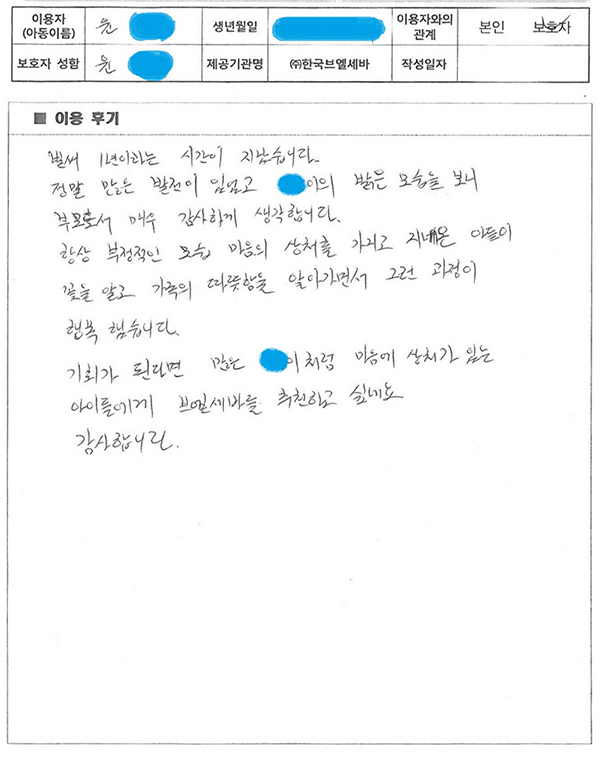 이용자 (아동이름) 윤 생년월일 이용자와의 관계 본인 보호자
보호자 성함 윤 제공기관명 ㈜한국브엘세바 작성일자
■ 이용 후기
벌써 1년이라는 시간이 지났습니다.
정말 많은 발전이 있었고 이의 밝은 모습을 보니
부모로서 매우 감사하게 생각합니다.
항상 부정적인 모습 마음의 상처를 가지고 지내온 아들이
꽃을 알고 가족의 따뜻함을 알아가면서 그런 과정이
행복 했습니다.
기회가 된다면 많은 이처럼 마음에 상처가 있는
아이들에게 브엘세바를 추천하고 싶네요
감사합니다.